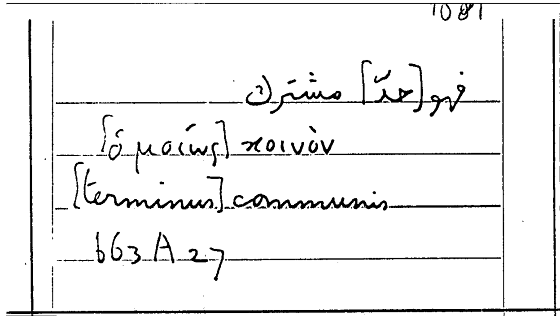 1081
فهو [حدّ] مشترك
[ὁμοίως] κοινὸν
[terminus] communis
663 A 27